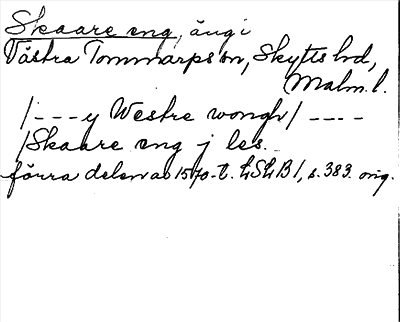 Skaare eng, äng i
Västra Tommarps sn, Skytts hd,
Malm. l.
/---y Westre wongh/ ----
/Skaare eng j les.
förra delen av 1570-t. LSLB 1, s. 383. orig.